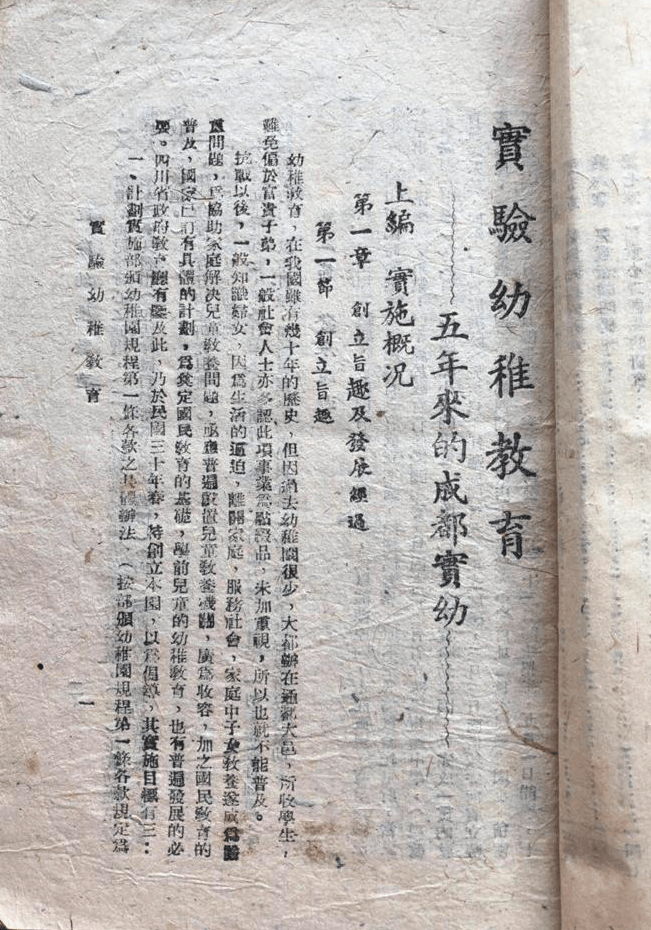 實驗幼稚教育
五年來的成都實幼
上編　實施概況
第一章　創立旨趣及發展經過
第一節　創立旨趣
幼稚教育，在我國雖有幾十年的歷史，但因過去幼稚園很少，大都辦在通都大邑，所收學生，
難免偏於富貴子弟，一般社會人士亦多認此項事業爲點綴品，未加重視，所以也就不能普及。
抗戰以後，一般知識婦女，因爲生活的逼迫，離開家庭，服務社會，家庭中子女敎養遂成爲嚴
重問題，爲協助家庭解決兒童敎養問題，亟應普遍設置兒童敎養機關，廣爲收容，加之國民敎育的
普及，國家已訂有具體的計劃，爲奠定國民敎育的基礎，學前兒童的幼稚敎育，也有普遍發展的必
要。四川省政府敎育廳有鑒及此，乃於民國三十年春，特創立本園，以爲倡導，其實施目標有三：
一、計劃實施部頒幼稚園規程第一條各款之具體辦法、（按部頒幼稚園規程第一條各款規定爲
實驗幼稚敎育
一